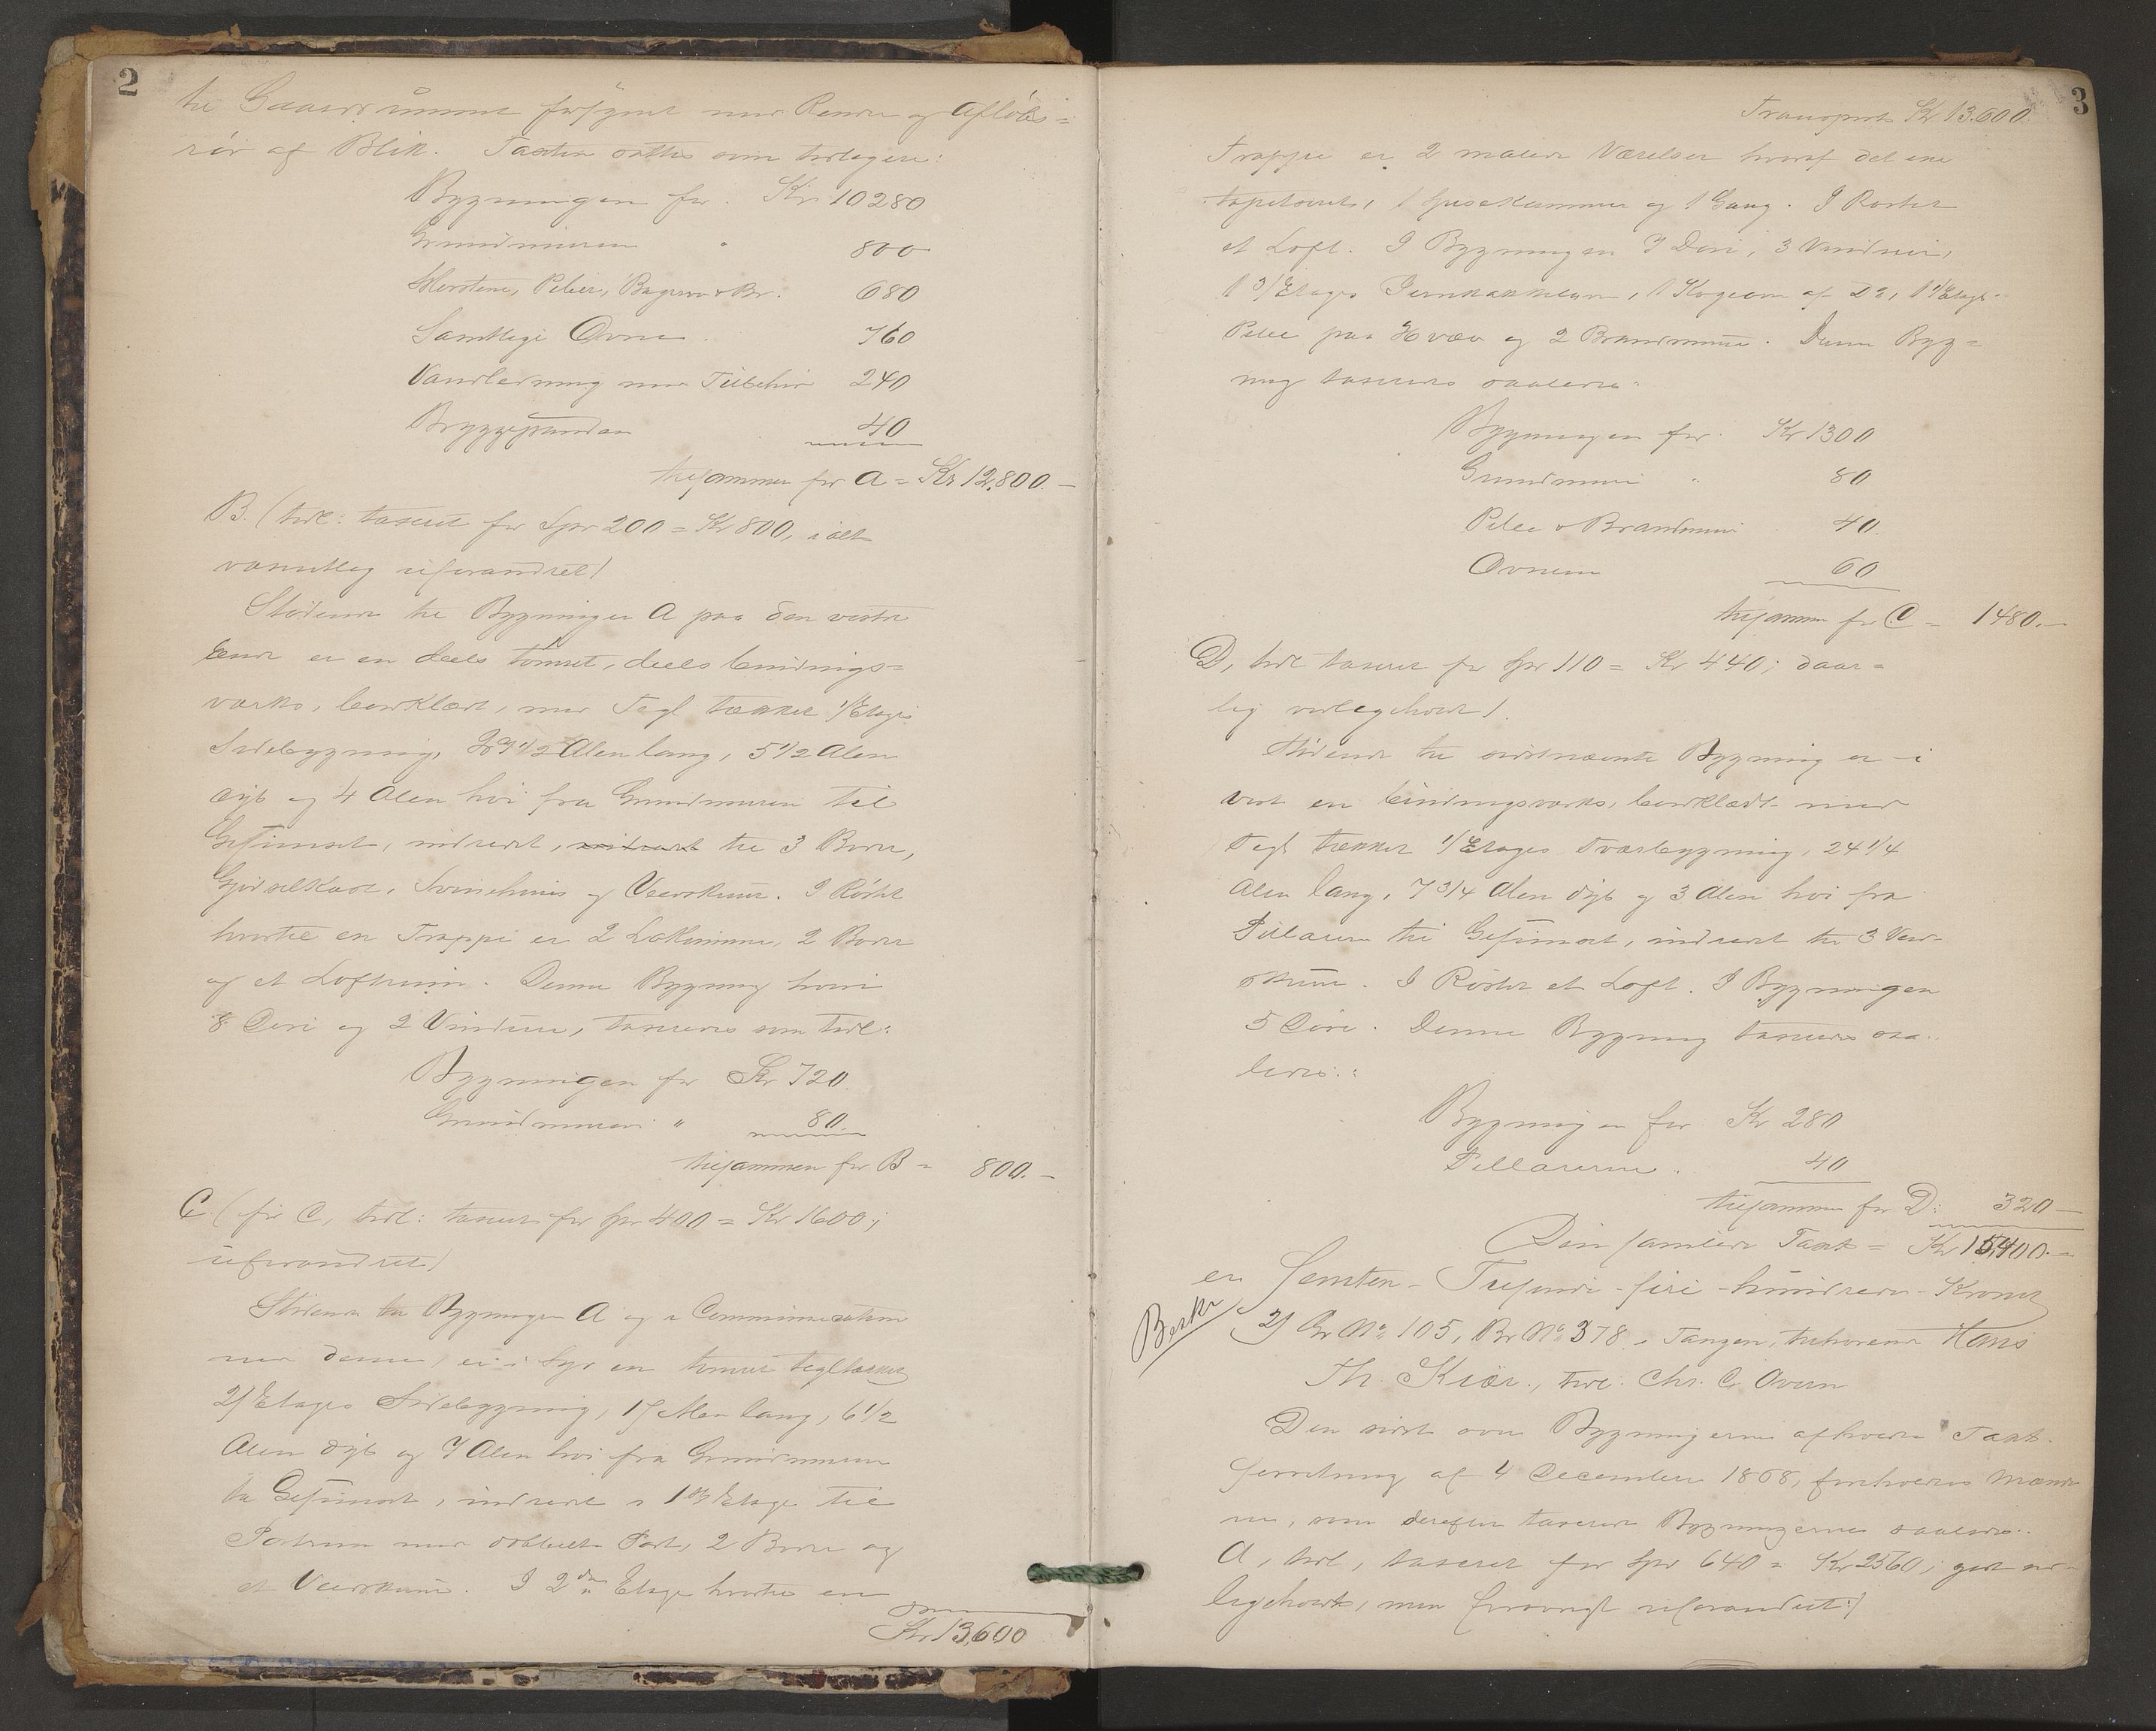 2
til Gaardsrummet forsynet med Render og Afløbs=
rør af Blik. Taxten sattes som tidligere:
Bygningen for Kr 10280
Grundmuren " 800
Skorstene, Peler, Bagerov & Br. 680
Samtlige Ovne 760
Vandledning med Tilbehør 240
Bryggepanden 40
tilsammen for A = Kr 12,800.—
B. (tidl: taxeret for Spd 200 = Kr 800, i alt
væsentlig uforandret)
Stødende til Bygningen A paa den vestre
Ende er en deels tømret, deels bindings=
værks, bordklædt, med Tegl tækket 1/Etages
Sidebygning, 29 1/2 Alen lang, 5 1/2 Alen
dyb og 4 Alen høi fra Grundmuren til
Gesimset, indredet, indredet til 3 Boder,
Gjødselkast, Svinehuus og Vedskuur. I Røstet
hvortil en Trappe er 2 Lokummer, 2 Boder
og et Loftrum. Denne Bygning hvori
8 Døre og 2 Vinduer, taxeres som tidl:
Bygningen for Kr 720
Grundmuren " 80
tilsammen for B = 800.—
C (før C, tidl: taxeret for Spd 400 = Kr 1600;
uforandret)
Stødende til Bygningen A og i Communication
med denne, er i Syd en tømret tegltækket
2/Etages Sidebygning, 17 Alen lang, 6 1/2
Alen dyb og 7 Alen høi fra Grundmuren
til Gesimset, indredet i 1ste Etage til
Portrum med dobbelt Port, 2 Boder og
et Vedskuur. I 2den Etage hvortil en
Kr 13,600
3
Transport Kr 13.600
Trappe er 2 malede Værelser hvoraf det ene
tapetseret, 1 Spisekammer og 1 Gang. I Røstet
et Loft. I Bygningen 7 Døre, 3 Vinduer,
1 3/Etages Jernkakkelovn, 1 Kogeovn af Do, 1 1/Etages
Pibe paa Hvælv og 2 Brandmure. Denne Byg=
ning taxeres saaledes:
Bygningen for Kr 1300
Grundmuren " 80
Pibe & Brandmure 40
Ovnene 60
tilsammen for C = 1480.—
D, tidl taxeret for Spd 110 = Kr 440; daar=
lig vedligeholdt).
Stødende til sidstnævnte Bygning er i
vest en bindingsværks, bordklædt med
Tegl tækket 1/Etages Tværbygning, 24 1/4
Alen lang, 7 3/4 Alen dyb og 3 Alen høi fra
Pillarene til Gesimset, indredet til 3 Ved=
skuur. I Røstet et Loft. I Bygningen
5 Døre. Denne Bygning taxeres saa=
ledes:
Bygningen for Kr 280
Pillarerne 40
tilsammen for D: 320—
Den samlede Taxt = Kr 15,400.—
er Femten - Tusinde - fire - hundrede - Kroner
Beskr
2) Gr No 105, Br No 378 i Tangen, tilhørende Hans
Th. Kiær, tidl. Chr. C. Oveen
Den sidst over Bygningerne afholdte Taxt-
forretning af 4 December 1868, foreholdtes Mænde
ne, som derefter taxerede Bygningerne saaledes:
A, tidl, taxeret for Spd 640 = Kr 2560; godt ved=
ligeholdt, men forøvrigt uforandret)